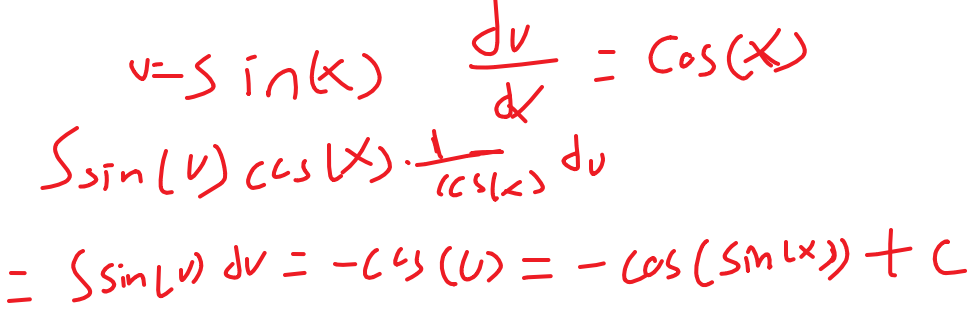 u=sin(x) du/dx = cos(x)
∫sin(u) cos(x) · 1/cos(x) du
= ∫sin(u) du = -cos(u) = -cos(sin(x)) + C